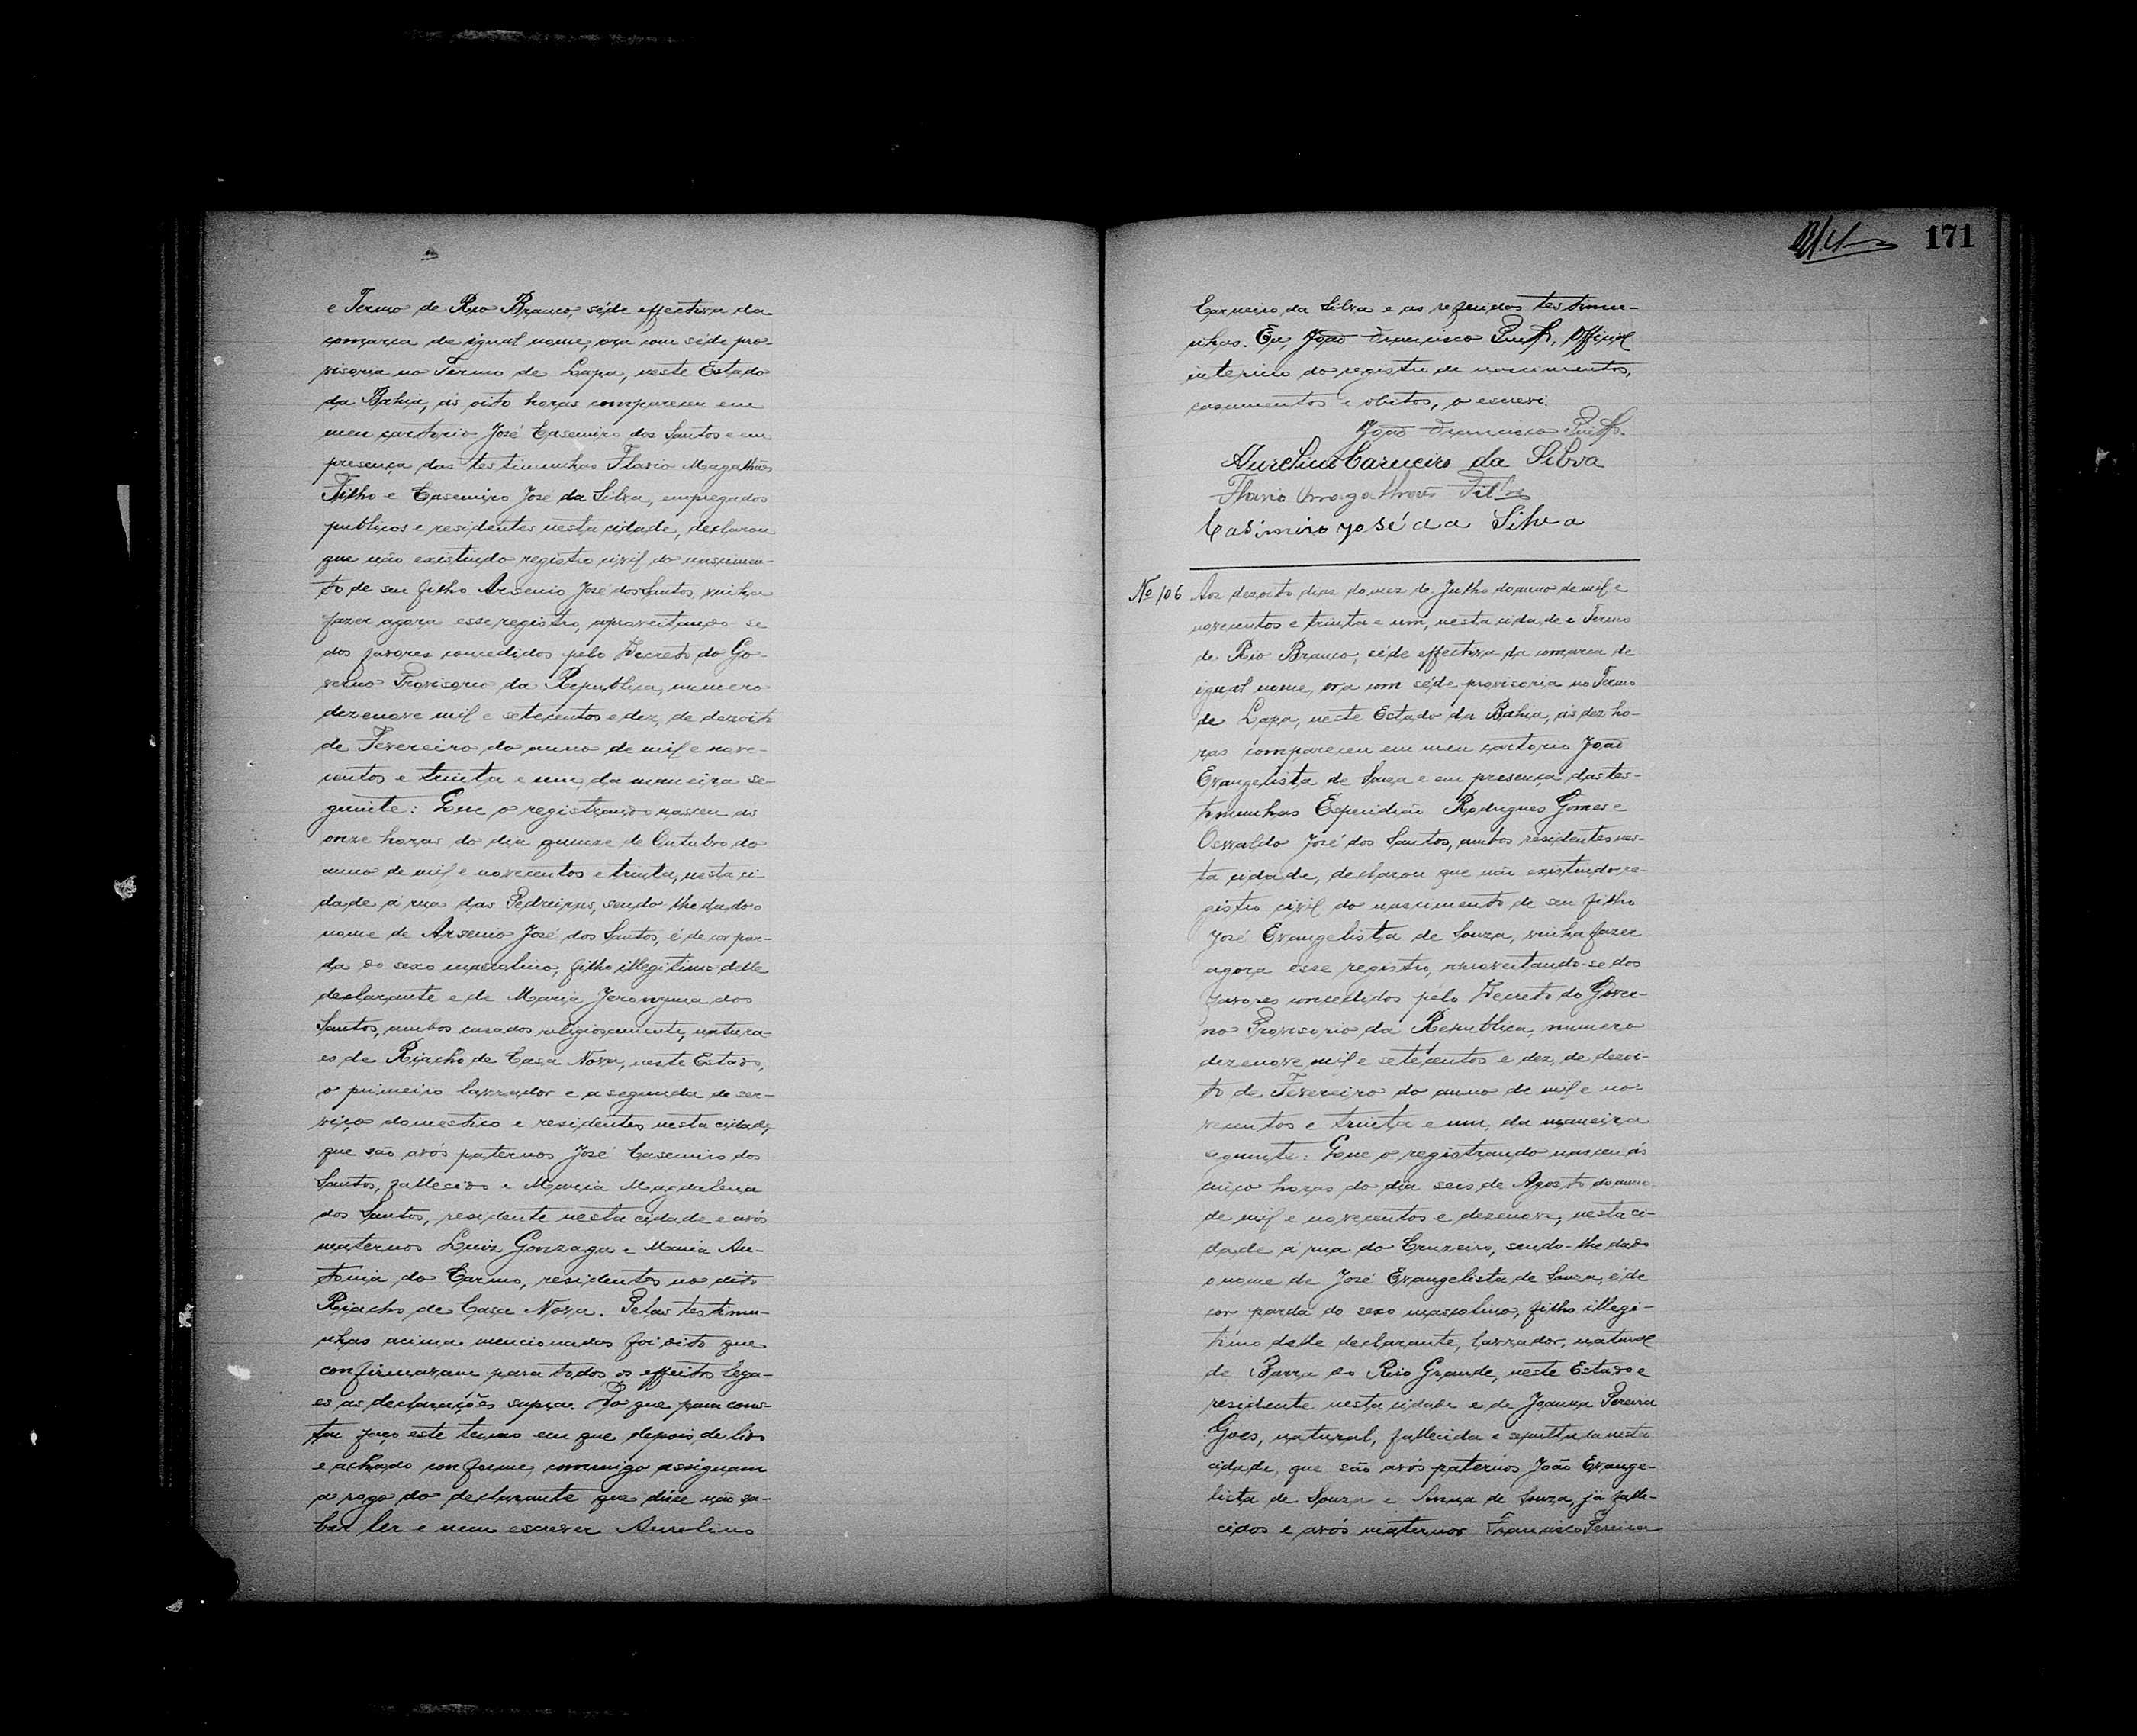 e Termo de Rio Branco, séde effectiva da
comarca de igual nome, ora com séde pro-
visoria no Termo de Lapa, neste Estado
da Bahia, ás oito horas compareceu em
meu cartorio José Casemiro dos Santos e em
presença das testimunhas Flavio Magalhães
Filho e Casemiro José da Silva, empregados
publicos e residentes nesta cidade, declarou
que não existindo registro civil do nascimen-
to de seu filho Arsenio José dos Santos, vinha
fazer agora esse registro, aproveitando-se
dos favores concedidos pelo Decreto do Go-
verno Provisorio da Republica, numero
dezenove mil e setecentos e dez, de dezoito
de Fevereiro do anno de mil e nove-
centos e trinta e um, da maneira se-
guinte: Que o registrando nasceu ás
onze horas do dia quinze de Outubro do
anno de mil e novecentos e trinta, nesta ci-
dade á rua das Pedreiras, sendo-lhe dado o
nome de Arsenio José dos Santos, é de cor par-
da do sexo mascolino, filho illegitimo delle
declarante e de Maria Jeronyma dos
Santos, ambos casados religiosamente, natura-
es de Riacho de Casa Nova, neste Estado,
o primeiro lavrador e a segunda de ser-
viço domestico e residentes nesta cidade,
que são avós paternos José Casemiro dos
Santos, fallecido e Maria Magdalena
dos Santos, residente nesta cidade e avós
maternos Luiz Gonzaga e Maria An-
tonia do Carmo, residentes no dito
Riacho de Casa Nova. Pelas testimu-
nhas acima mencionadas foi dito que
confirmavam para todos os effeitos lega-
es as declarações supra. Do que para cons-
tar faço este termo em que depois de lido
e achado conforme, commigo assignam
a rogo do declarante que disse não sa-
ber ler e nem escrever Aurelino
171
Carneiro da Silva e as referidas testimu-
nhas. Eu, João Francisco, Official
interino do registro de nascimentos,
casamentos e obitos, o escrevi.
João Francisco
Aurelino Carneiro da Silva
Flavio Magalhães Filho
Casimiro José da Silva
No 106 Aos dezoito dias do mez de Julho do anno de mil e
novecentos e trinta e um, nesta cidade e Termo
de Rio Branco, séde effectiva da comarca de
igual nome, ora com séde provisoria no Termo
de Lapa, neste Estado da Bahia, ás dez ho-
ras compareceu em meu cartorio João
Evangelista de Souza e em presença das tes-
timunhas Esperidião Rodrigues Gomes e
Osvaldo José dos Santos, ambos residentes nes-
ta cidade, declarou que não existindo re-
gistro civil do nascimento de seu filho
José Evangelista de Souza, vinha fazer
agora esse registro, aproveitando-se dos
favores concedidos pelo Decreto do Gover-
no Provisorio da Republica, numero
dezenove mil e setecentos e dez, de dezoi-
to de Fevereiro do anno de mil e no-
vecentos e trinta e um, da maneira
seguinte: Que o registrando nasceu ás
cinco horas do dia seis de Agosto do anno
de mil e novecentos e dezenove, nesta ci-
dade á rua do Cruzeiro, sendo-lhe dado
o nome de José Evangelista de Souza, é de
cor parda do sexo mascolino, filho illegi-
timo delle declarante, lavrador, natural
de Barra do Rio Grande, neste Estado e
residente nesta cidade e de Joanna Pereira
Goes, natural, fallecida e sepultada nesta
cidade, que são avós paternos João Evange-
lista de Souza e Anna de Souza, já falle-
cidos e avós maternos Francisco Pereira